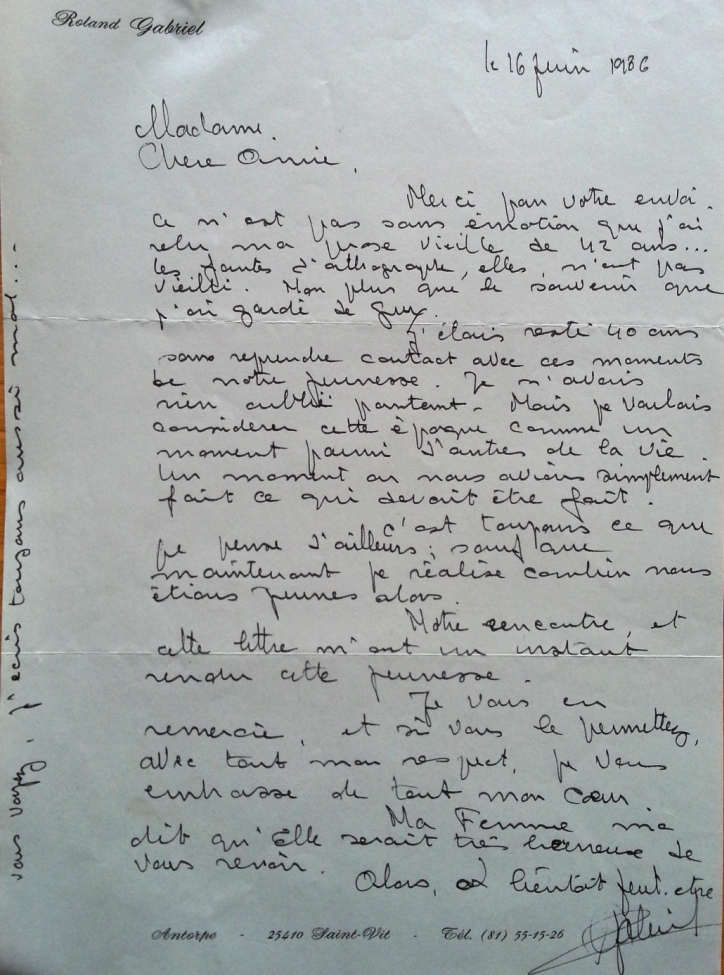 Roland Gabriel
le 16 juin 1986
Madame,
Chere Amie,
Merci pour votre envoi.
Ce n'est pas sans émotion que j'ai
relu ma prose vieille de 42 ans...
les fautes d'orthographe, elles, n'ont pas
vieilli. Non plus que le souvenir que
j'ai gardé de Guy.
J'étais resté 40 ans
sans reprendre contact avec ces moments
de notre jeunesse. Je n'avais
rien oublié pourtant. Mais je voulais
considerer cette époque comme un
moment parmi d'autres de la vie.
Un moment ou nous avions simplement
fait ce qui devait être fait.
C'est toujours ce que
je pense d'ailleurs ; sauf que
maintenant je réalise combien nous
étions jeunes alors.
Notre rencontre, et
cette lettre m'ont un instant
rendu cette jeunesse.
Je vous en
remercie, et si vous le permettez,
avec tout mon respect, je vous
embrasse de tout mon cœur.
Ma Femme me
dit qu'elle serait très heureuse de
vous revoir.
Alors, a bientôt peut-etre
vous voyez, j'ecris toujours aussi mal...
Antorpe - 25410 Saint-Vit - Tél. (81) 55-15-26